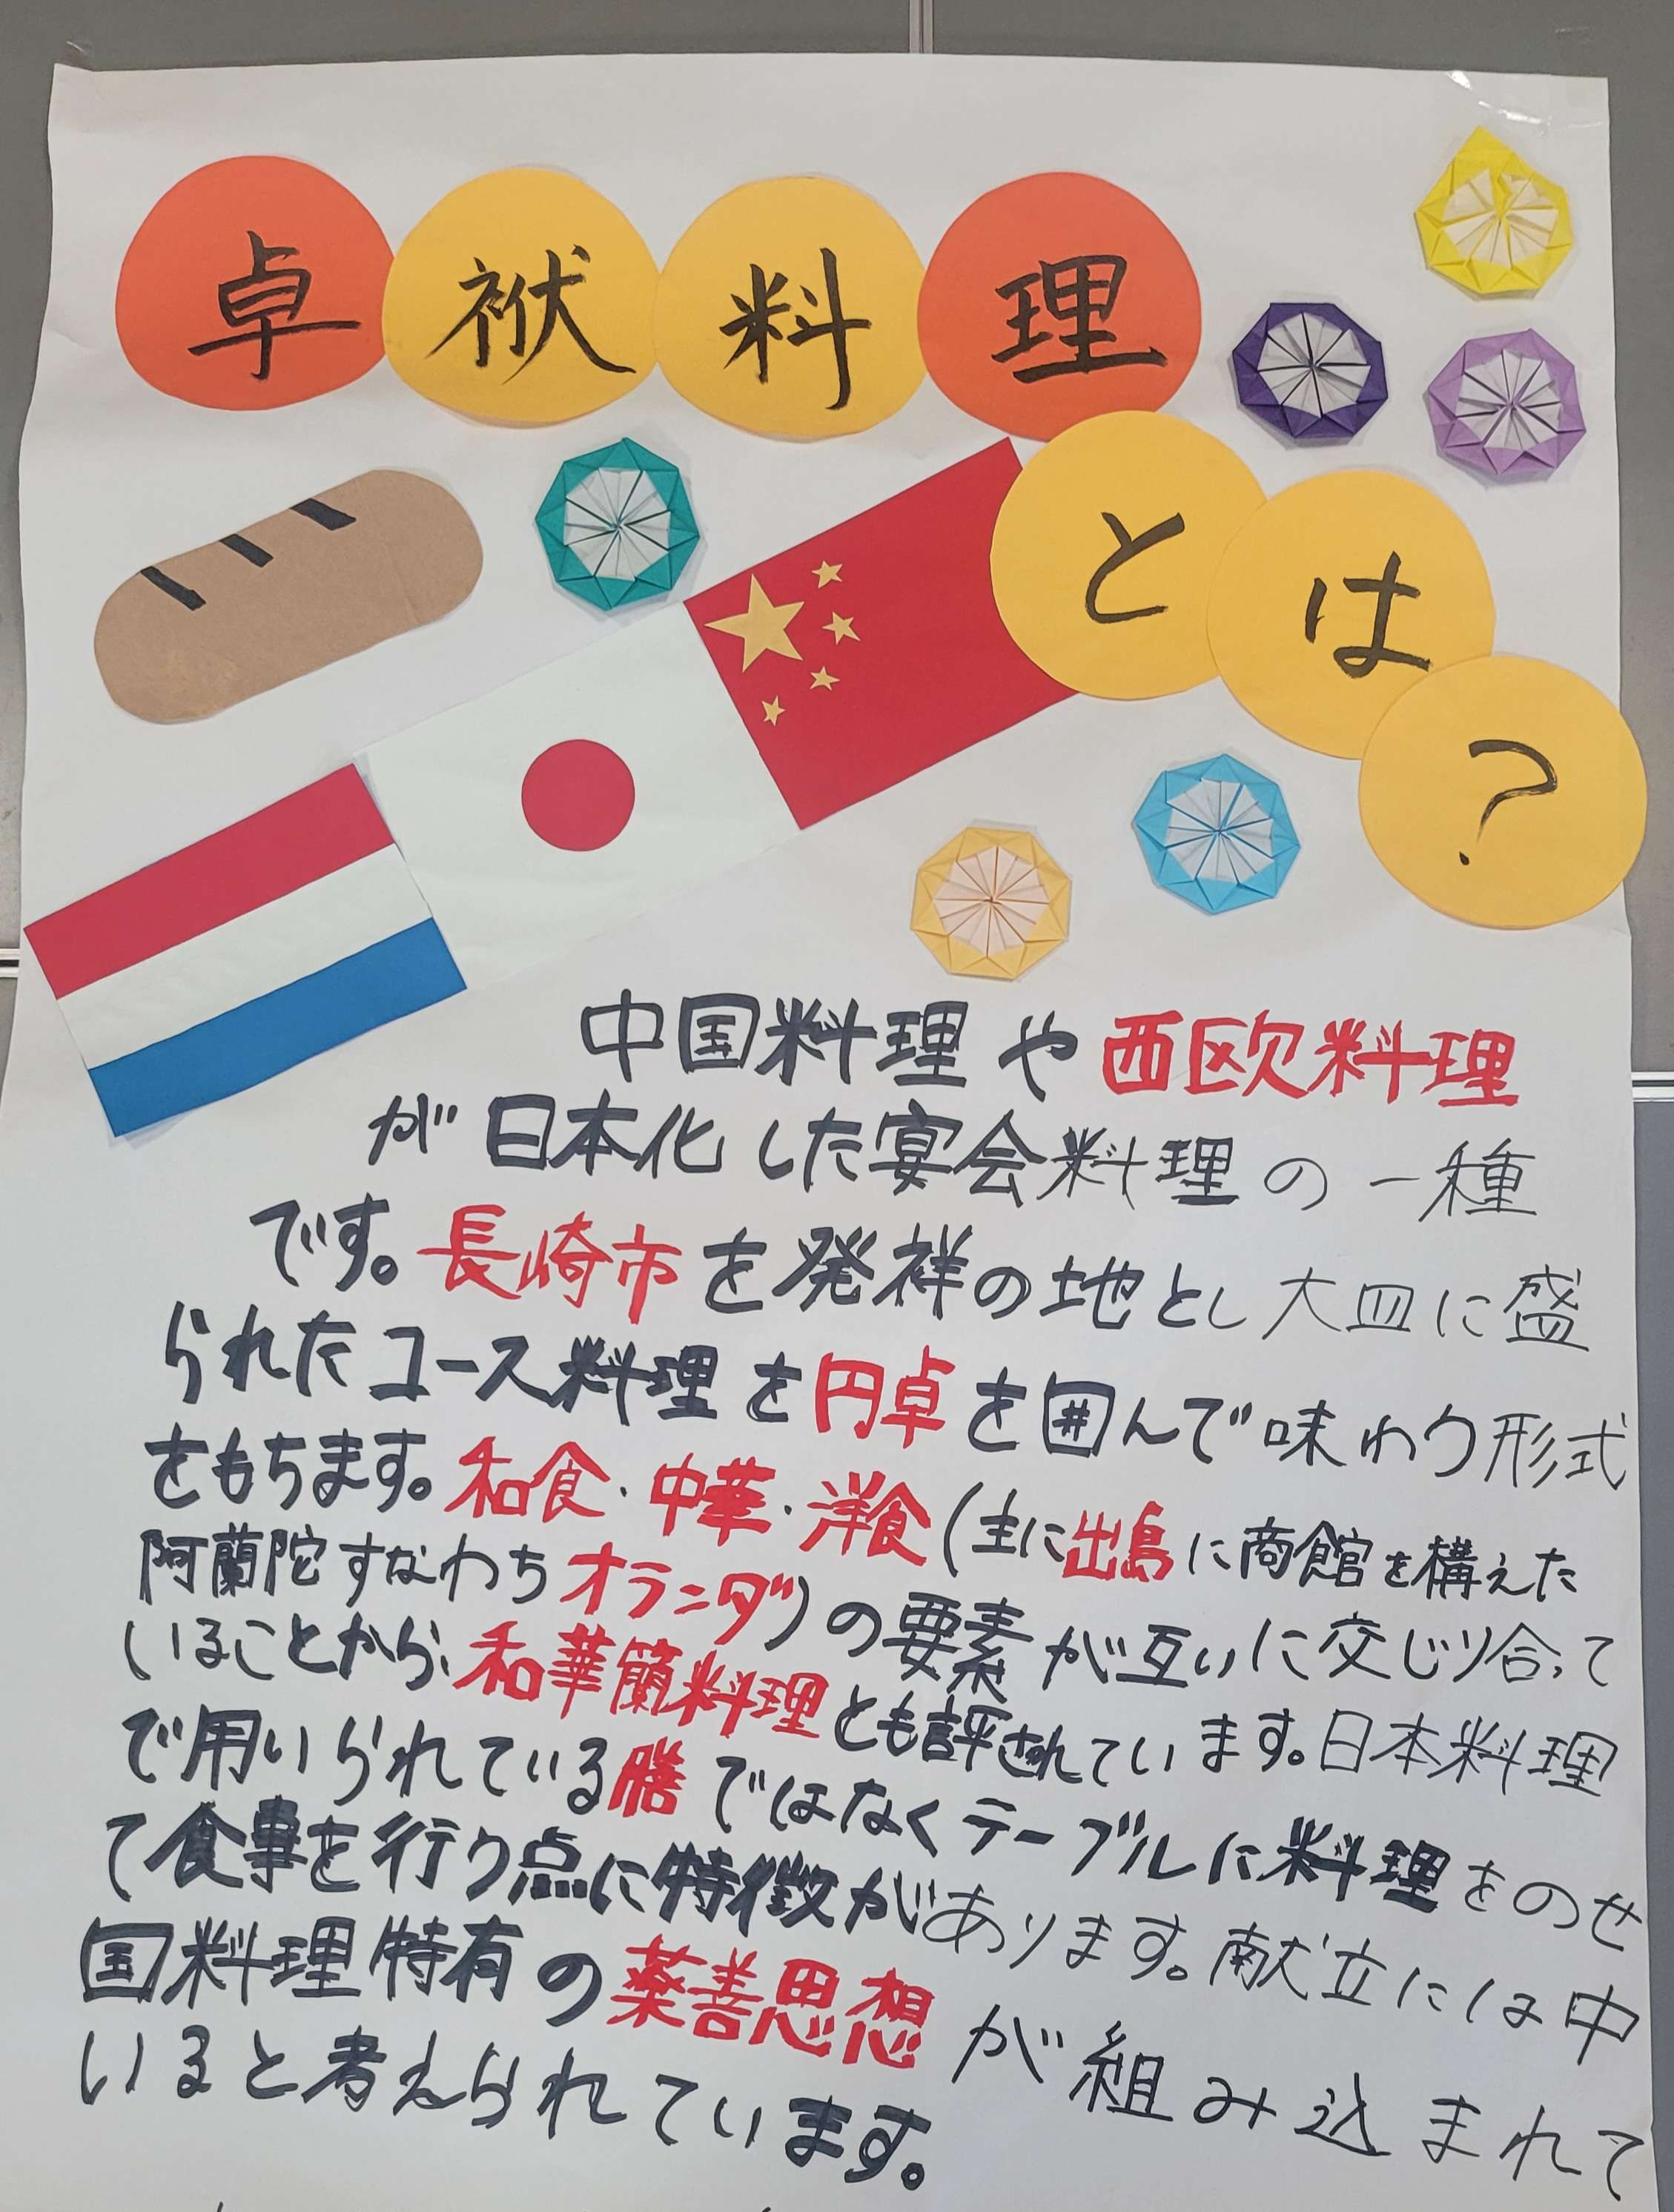 卓袱料理
とは?
中国料理や西欧料理
が日本化した宴会料理の一種
です。長崎市を発祥の地とし大皿に盛
られたコース料理を円卓を囲んで味わう形式
をもちます。和食・中華・洋食(主に出島に商館を構えた
阿蘭陀すなわちオランダ)の要素が互いに交じり合って
いることから、和華蘭料理とも評されています。日本料理
で用いられている膳ではなくテーブルに料理をのせ
て食事を行う点に特徴があります。献立には中
国料理特有の薬善思想が組み込まれて
いると考えられています。